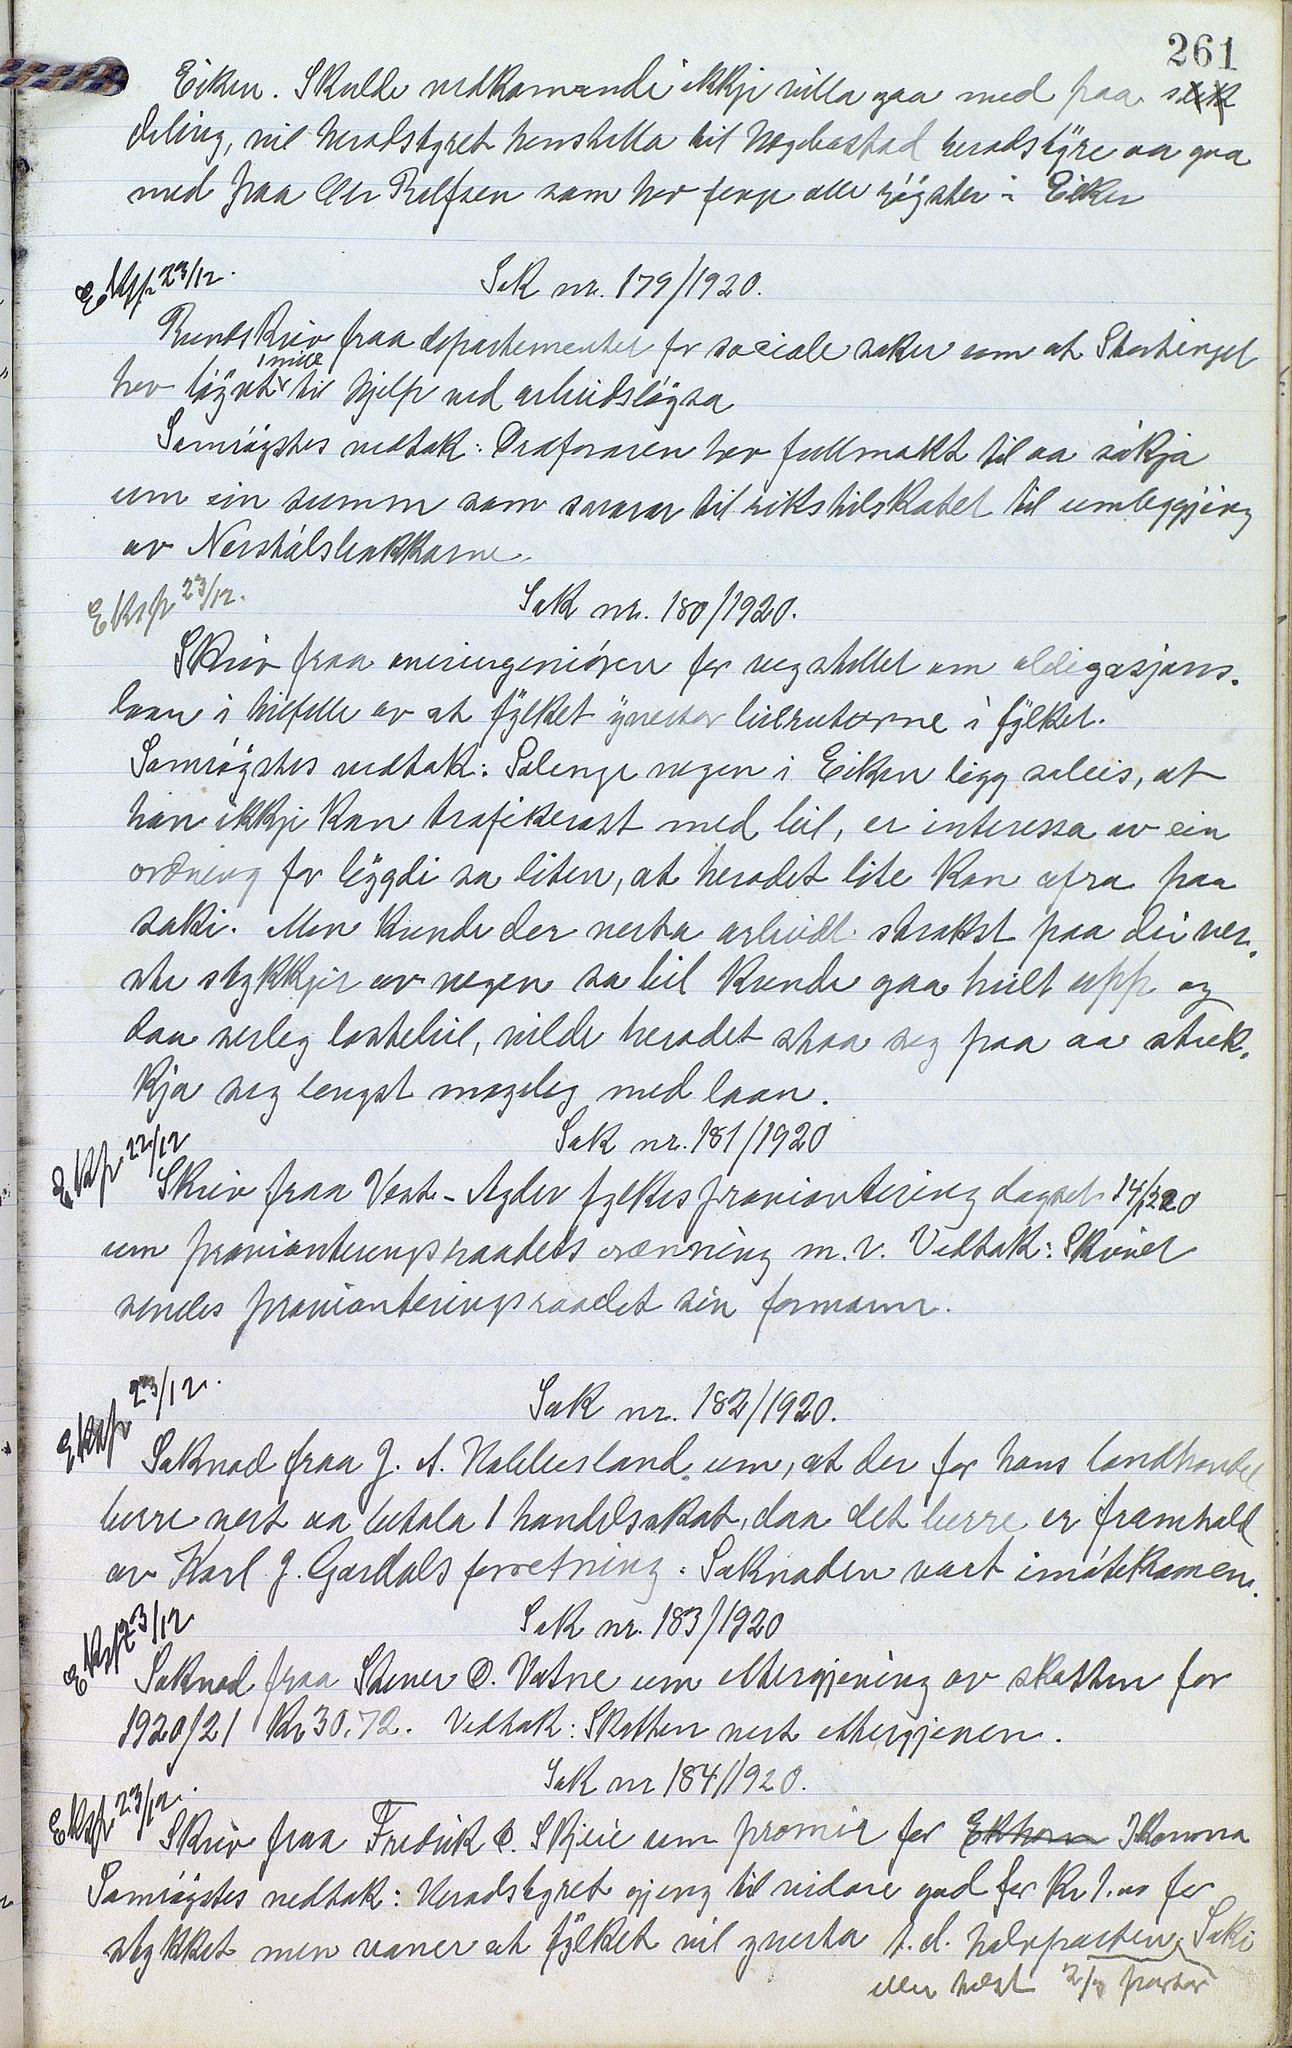 261
Eiken. Skulde vedkomande ikkje villa gaa med paa slik
deling, vil heradstyret henstella til Hægebostad heradstyre aa gaa
med paa Ole Rolfsen som hev fenge alle røyster i Eiken
Eksp 23/12.
Sak nr. 179/1920.
Rundskriv fraa departementet for sociale saker um at Stortinget
hev løyvt 1 mill til hjelp ved arbeidsløysa
Samrøystes vedtak: Ordforaren hev fullmakt til aa søkja
um ein summ som svarar til rikstilskotet til umleggjing
av Nerstølsbakkarne
Eksp 23/12.
Sak nr. 180/1920.
Skriv fraa overingeniøren for vegstellet um obligasjons-
laan i tilfelle av at fylket yvertar bilrutorne i fylket.
Samrøystes vedtak: Solenge vegen i Eiken ligg soleis, at
han ikkje kan trafikerast med bil, er interessa av ein
ordning for bygdi sa liten, at heradet lite kan ofra paa
saki. Men kunde der verta arbeidt strakst paa dei ver-
ste stykkje av vegen sa bil kunde gaa heilt upp og
daa serleg lastebil, vilde heradet straa seg paa aa strek-
kja seg lengst mogeleg med laan.
Eksp 22/12
Sak nr. 181/1920
Skriv fraa Vest-Agder fylkes proviantering dagset 14/12 20
um provianteringsraadets ordning m. v. Vedtak: Skrivet
sendes provianteringsraadet sin formann.
Eksp 23/12.
Sak nr. 182/1920.
Søknad fraa J. A. Hobbesland um, at der for hans landhandel
berre vert aa betala 1 handelsskat, daa det berre er framhald
av Karl J. Gardals forretning. Søknaden vart imøtekomen.
Eksp 23/12
Sak nr. 183/1920
Søknad fraa Stener O. Vatne um ettergjeving av skatten for
1920/21 Kr 30.72. Vedtak: Skatten vert ettergjeven.
Sak nr 184/1920.
Eksp 23/12.
Skriv fraa Fredrik O. Skjeie um premie for Ekhorn Ikorna
Samrøystes vedtak: Heradstyret gjeng til vidare god for Kr 1.00 for
stykket men vonar at fylket vil yverta t.d. halvparten Saki
eller helst 2/3 partar